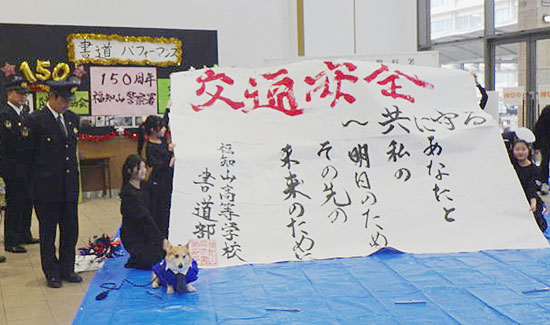 書道パフォーマンス
150
150周年
福知山警察署
交通安全
～共に守る
あなたと
私の
明日のため
その先の
未来のために
福知山高等学校
書道部